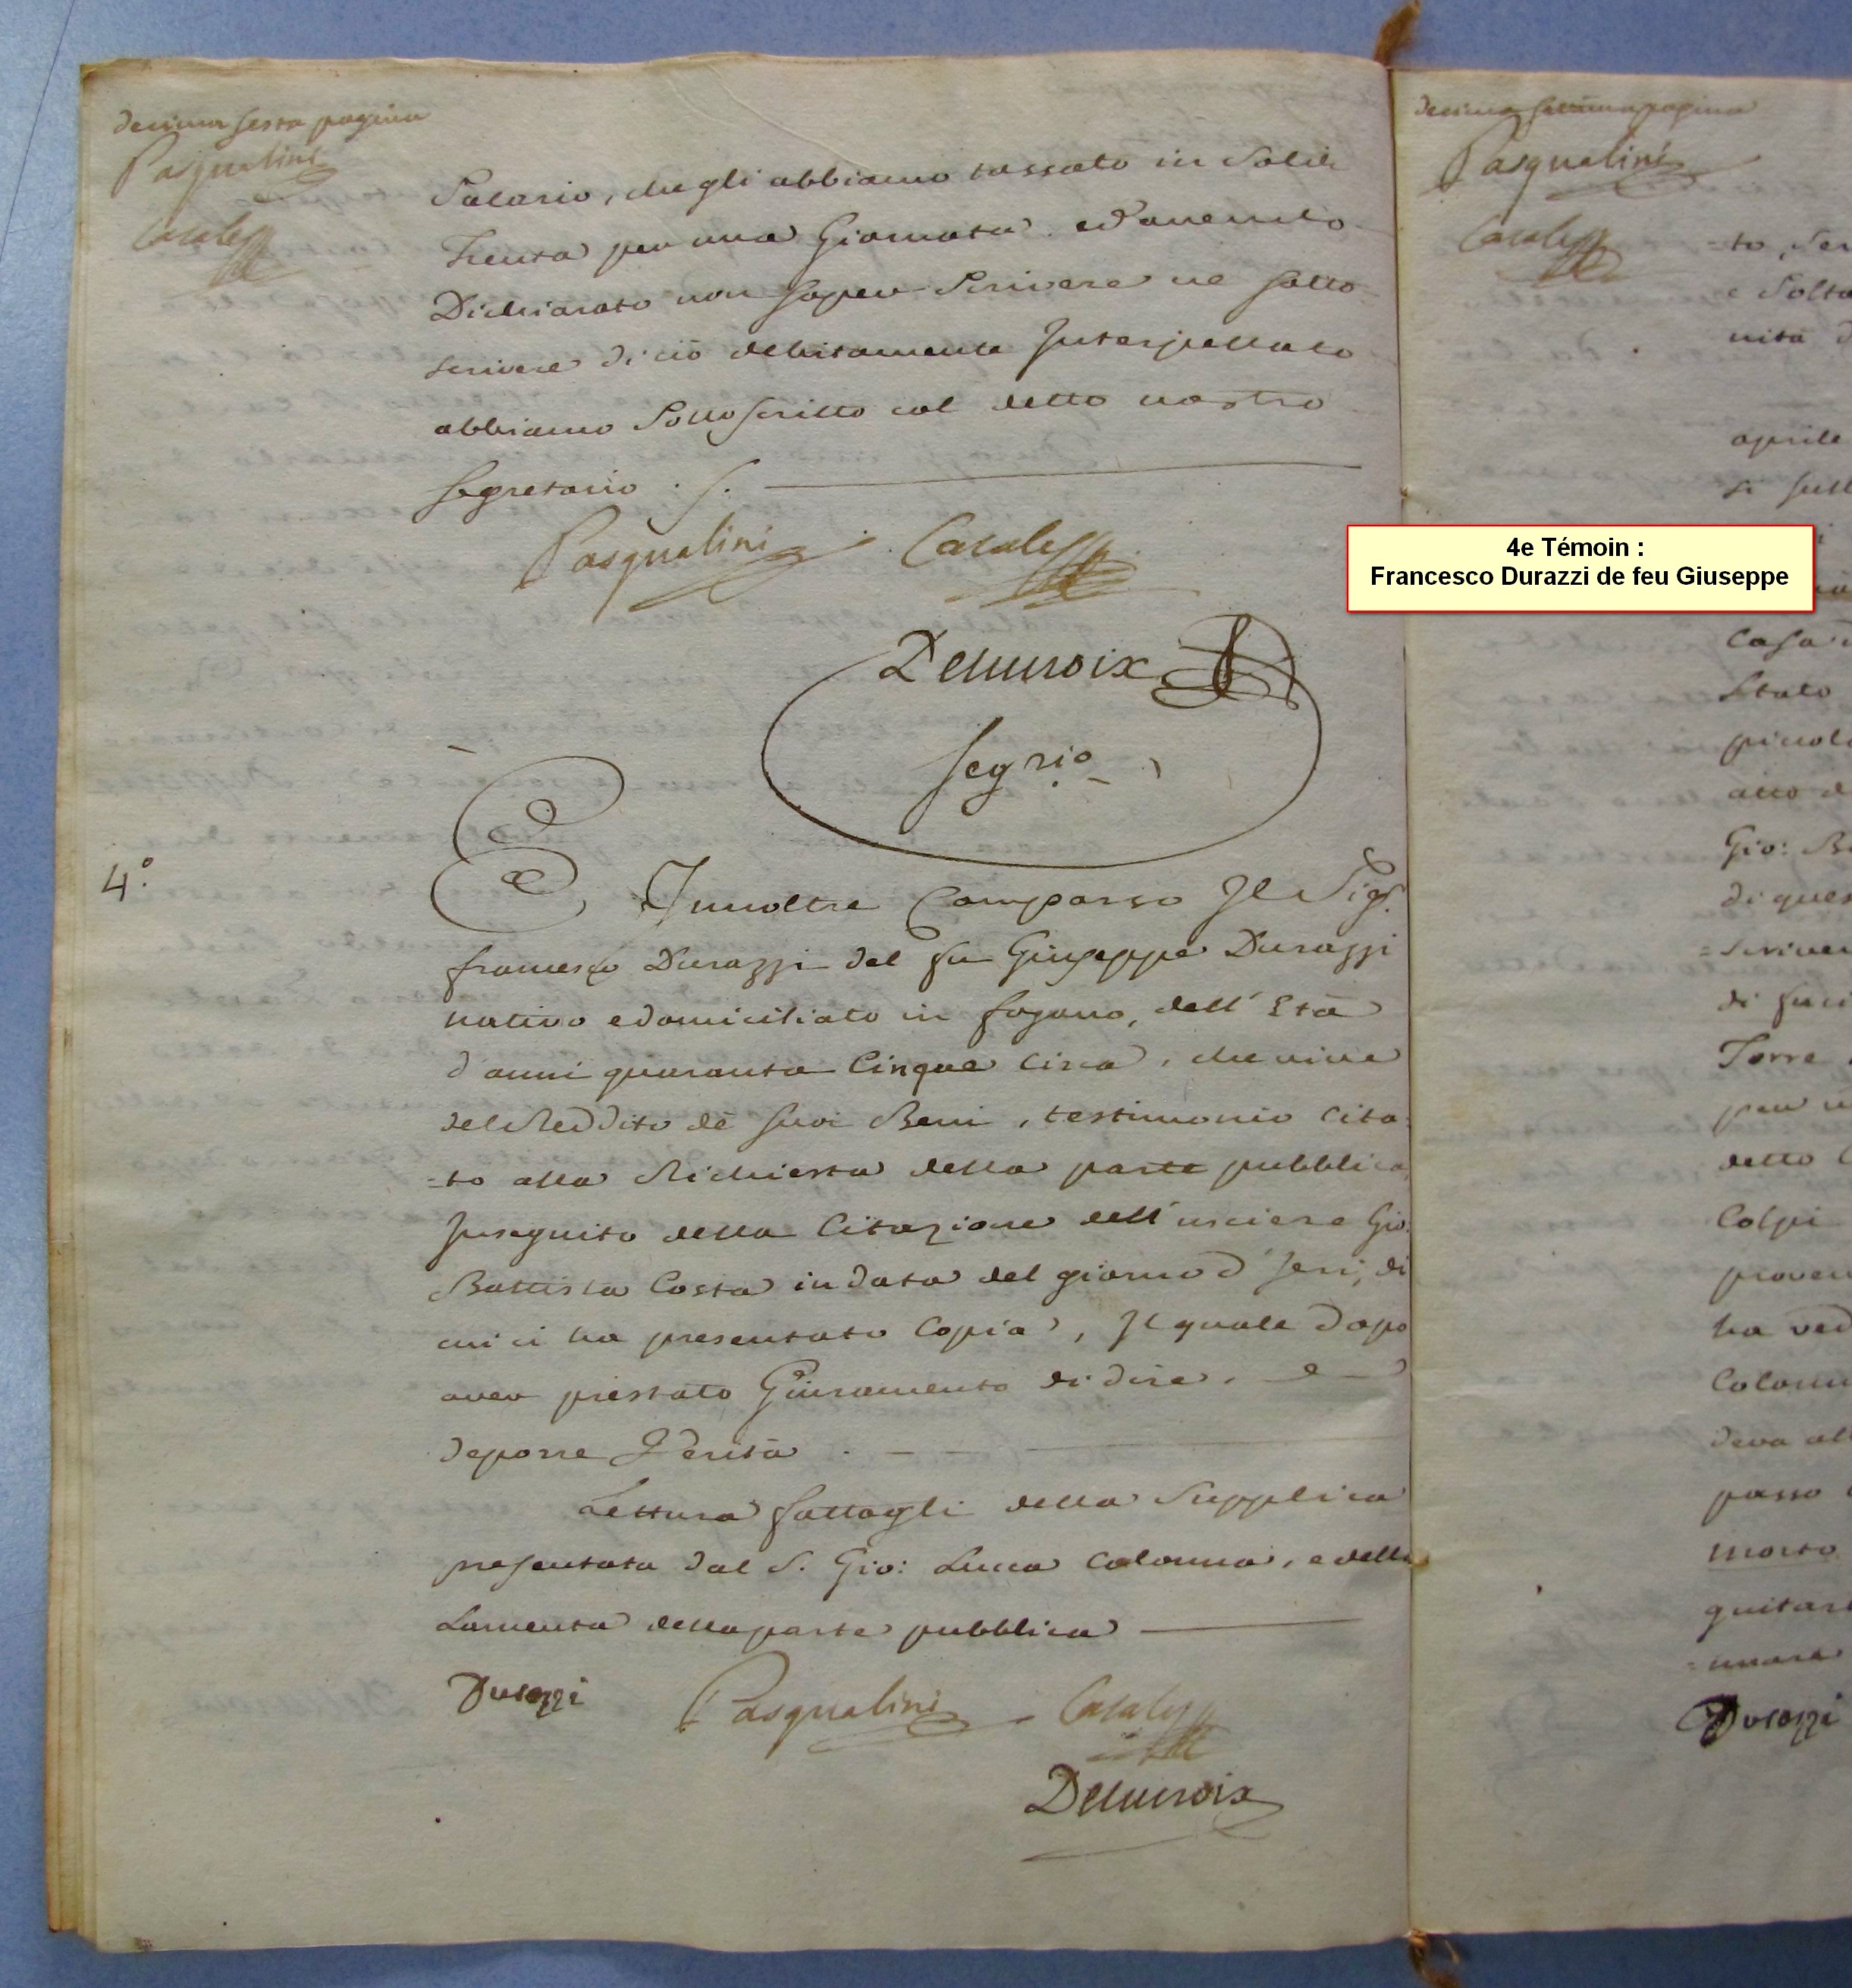 decima sesta pagina
Pasqualini
Casale
Salario, che gli abbiamo tassato in Soldi
Trenta per una Giornata. ed avendo
Dichiarato non saper Scrivere ne sotto
scrivere di ciò debitamente Interpellato
abbiamo Sottoscritto col detto nostro
Segretario . /.
Pasqualini Casale
Delucroix
Segrio
4.º
Innoltre Comparso Il Sigr.
francesco Durazzi del fu Giuseppe Durazzi
nativo e domiciliato in fozano, dell' Età
d'anni quaranta Cinque Circa, che vive
del Reddito de suoi Beni, testimonio Cita=
=to alla Richiesta della parte pubblica
Inseguito della Citazione dell'usciere Gio:
Battista Costa in data del giorno d'Jeri, di
cui ci ha presentato Copia, Il quale dopo
aver prestato Giuramento di dire, e
deporre Verità .
Lettura fattagli della Supplica
presentata dal S. Gio: Lucca Colonna, e della
Lamenta della parte pubblica
Durazzi Pasqualini Casale
Delucroix
decima settima pagina
Pasqualini
Casale
=to, Ser
e Solta
nità d
aprile
si sull
4e Témoin :
Francesco Durazzi de feu Giuseppe
Casa
Stato
piccol
atto d
Gio: B
di ques
=scriver
di fuci
Torre
per u
detto C
Colpi
proven
ha ved
Colonn
deva al
passo
morto
guitar
=mare
Durazzi